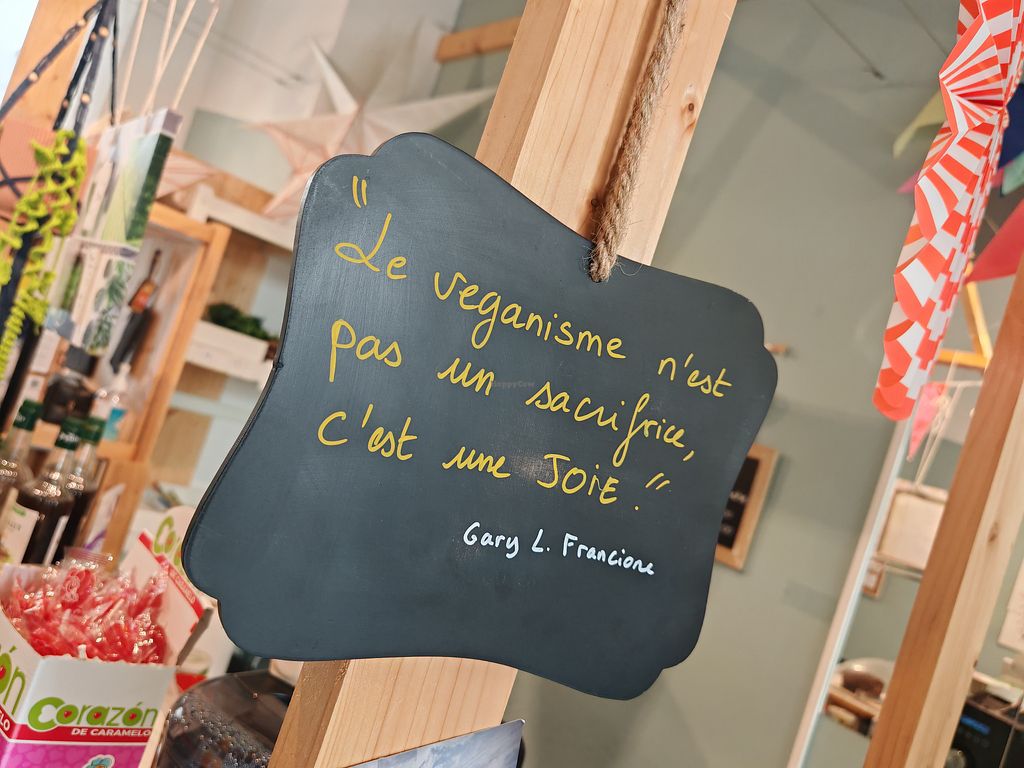 "Le veganisme n'est
pas un sacrifrice,
c'est une JOIE."
Gary L. Francione
Corazón
DE CARAMELO